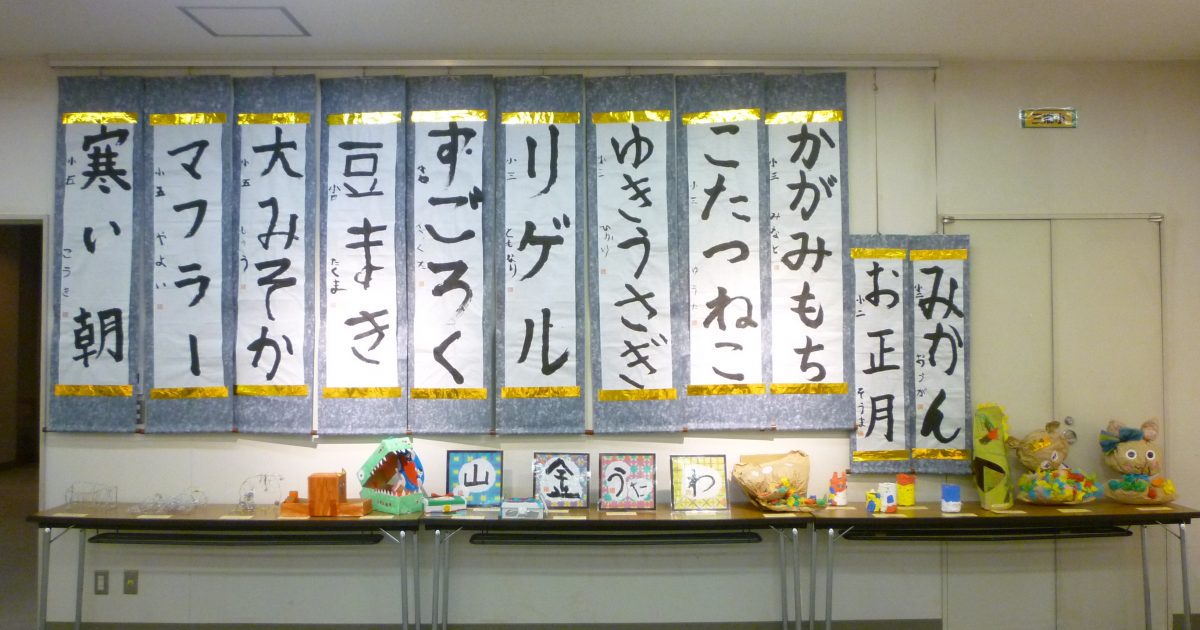 みかん
小二
お正月
小二
そうま
かがみもち
小三
みなと
こたつねこ
小三
ゆうた
ゆきうさぎ
小三
ひかり
リゲル
小三
ともなり
すごろく
豆まき
小四
たくま
大みそか
小五
マフラー
小五
やよい
寒い朝
小五
こうき
山
金
うた
わ